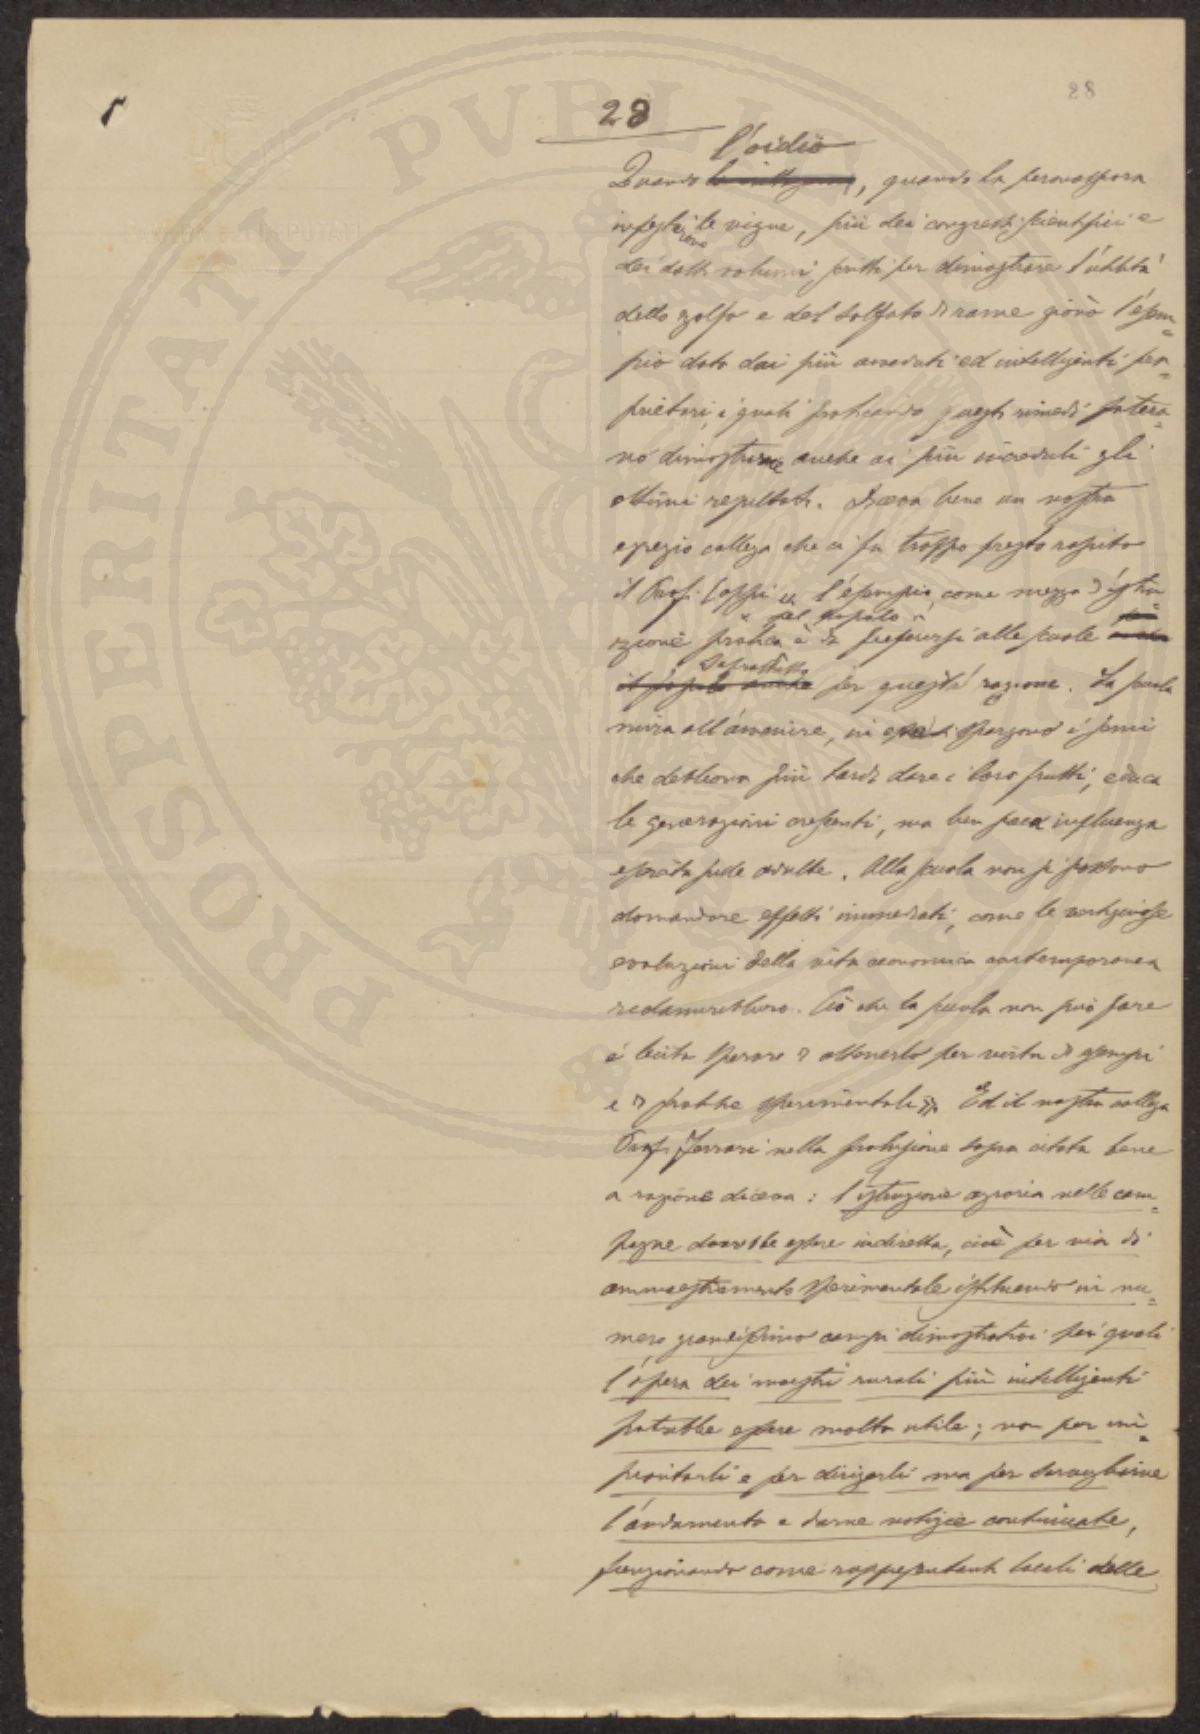 28
28
l'oidio
Quando, quando la peronospora
infestarono le vigne, più dei congressi scientifici e
dei dotti volumi scritti per dimostrare l'utilità
dello zolfo e del solfato di rame giovò l'esem=
pio dato dai più avveduti ed intelligenti pro=
prietari, i quali praticando questi rimedi potero=
no dimostrare anche ai più increduli gli
ottimi resultati. Diceva bene un nostro
egregio collega che ci fu troppo presto rapito
il Prof. Caffi l'esempio, come mezzo d'istru
del popolo
zione pratica è da preferirsi alle scuole
Soprattutto
il popolo anche per questa ragione. La scuola
mira all'avvenire, in essa si spargono i semi
che debbono più tardi dare i loro frutti, educa
le generazioni crescenti, ma ben poca influenza
esercita sulle adulte. Alla scuola non si possono
domandare effetti immediati, come le vertiginose
evoluzioni della vita economica contemporanea
reclamerebbero. Ciò che la scuola non può fare
è lecito sperare di ottenerlo per virtù di esempi
e di pratiche sperimentali». Ed il nostro collega
Prof. Ferrari nella prolusione sopra citata bene
a ragione diceva: l'istruzione agraria nelle cam=
pagne dovrebbe essere indiretta, cioè per via di
ammaestramento sperimentale istituendo in nu=
mero grandissimo campi dimostrativi pei quali
l'opera dei maestri rurali più intelligenti
potrebbe essere molto utile; non per im=
piantarli e per dirigerli ma per sorvegliarne
l'andamento e darne notizie continuate,
funzionando come rappresentanti locali delle
PROSPERITATI PVBLICAE